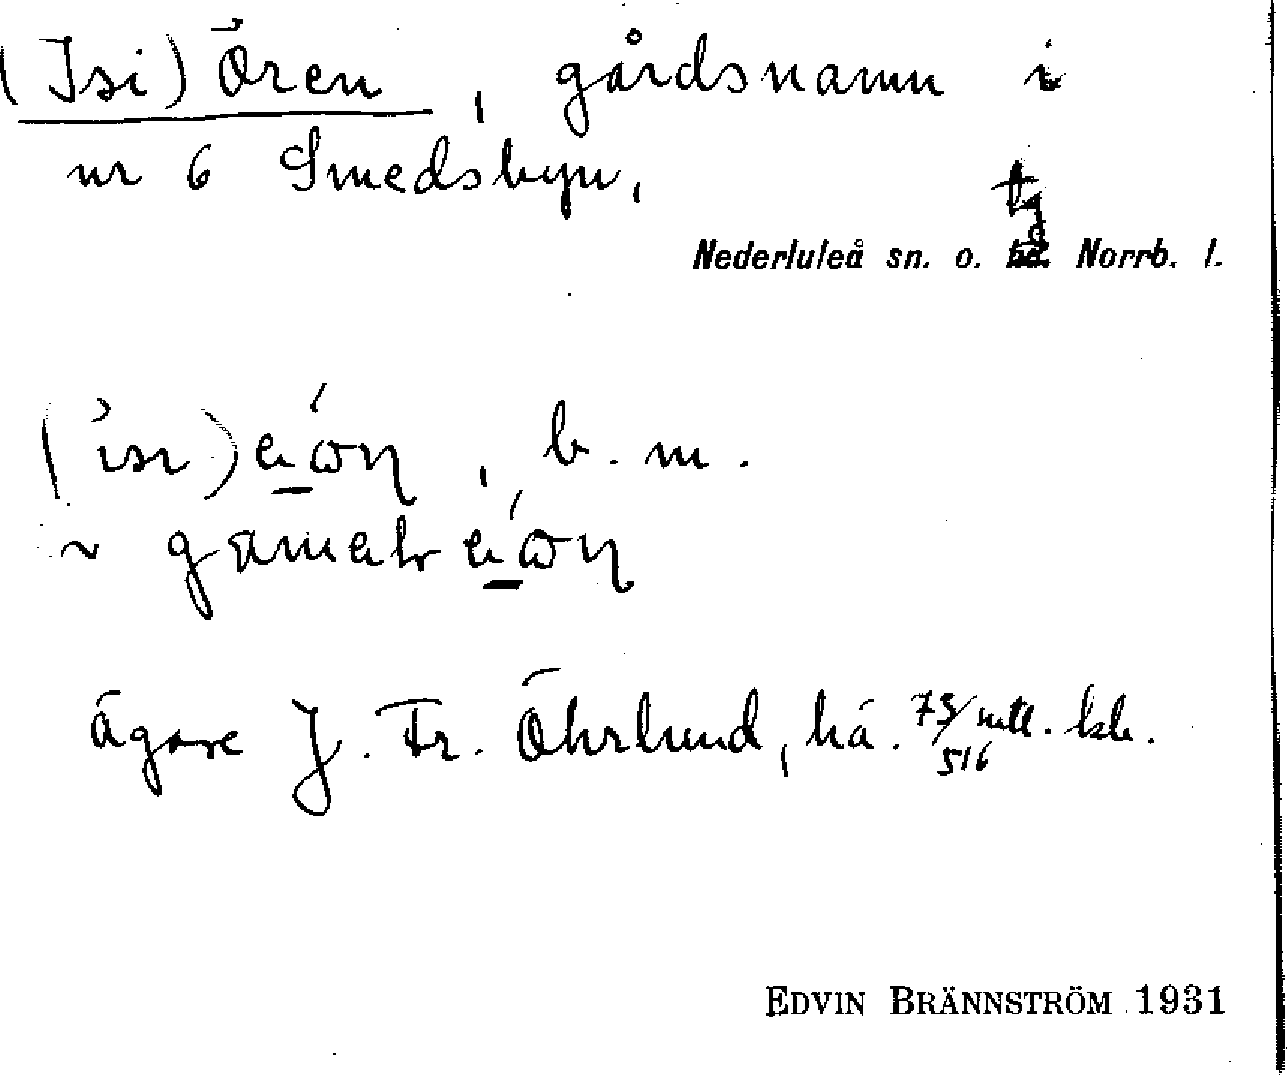 (Isi) Ören, gårdsnamn i
nr 6 Smedsbyn,
tg
Nederluleå sn. o. hd. Norrb. l.
b. m.
ägare J. Fr. Öhrlund, hä. 73/516 mtl. kb.
EDVIN BRÄNNSTRÖM 1931